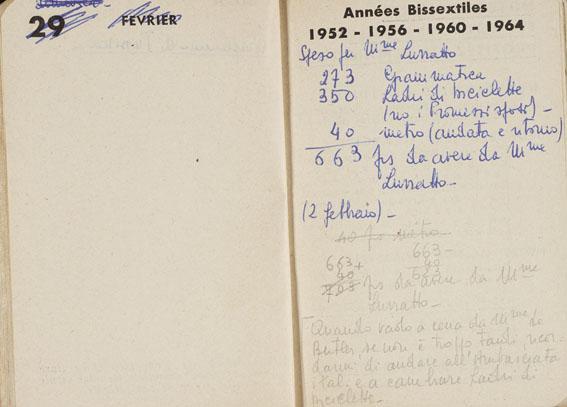 29 FEVRIER
Années Bissextiles
1952 - 1956 - 1960 - 1964
Speso per Mme Luzzatto
273 Grammatica
350 Ladri di biciclette
(no i Promessi sposi) -
40 metro (andata e ritorno)
663 frs da avere da Mme
Luzzatto -
(2 febbraio) -
40 frs metro
663 + 663 -
40 40
703 frs da avere da Mme
Luzzatto -
- Quando vado a cena da Mme de
Butler, se non è troppo tardi, ricor-
darmi di andare all'Ambasciata
ital. e a cambiare Ladri di
biciclette -